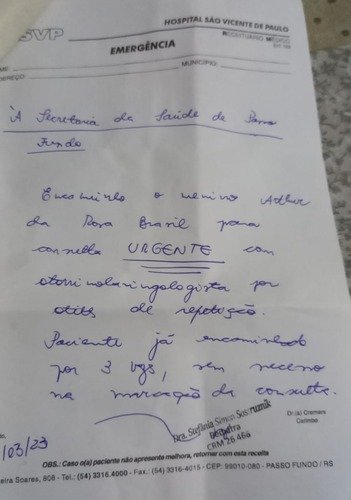 SVP
HOSPITAL SÃO VICENTE DE PAULO
RECEITUÁRIO MÉDICO
EMERGÊNCIA
ME:
DEREÇO:
MUNICÍPIO:
À Secretaria da Saúde de Passo
Fundo
Encaminho o menino Arthur
da Rosa Brasil para
consulta URGENTE com
otorrinolaringologista por
otites de repetição.
Paciente já encaminhado
por 3 vzs, sem
na marcação da consulta.
Dra. Stefânia Simon
Pediatra
CRM 26.466
Dr.(a) Cremers
Carimbo
/03/23
OBS.: Caso o(a) paciente não apresente melhora, retornar com esta receita
eira Soares, 808 - Tel.: (54) 3316.4000 - Fax.: (54) 3316-4015 - CEP: 99010-080 - PASSO FUNDO / RS